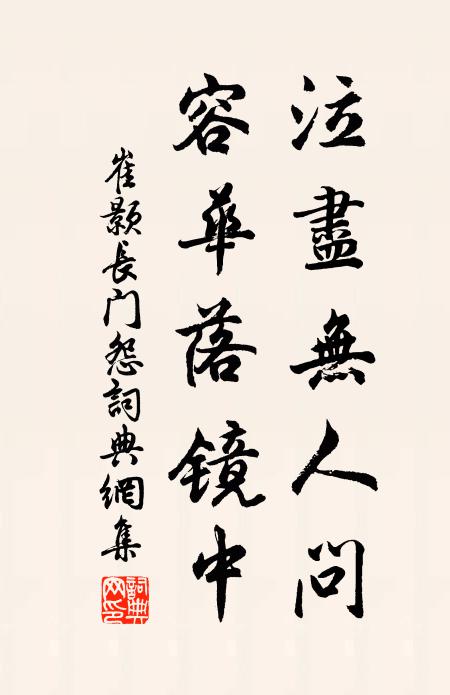 泣盡無人問
容華落镜中
崔颢長门怨詞典網集
詞典網印